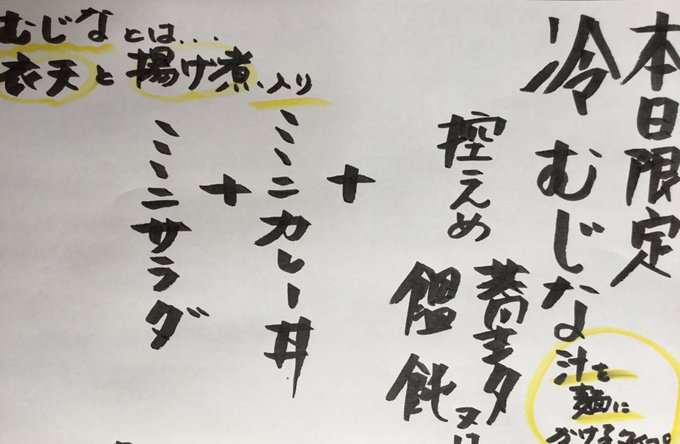 本日限定
冷むじな
汁を
麺に
かける
控えめ
蕎麦
又は
饂飩
+
ミニカレー丼
+
ミニサラダ
むじなとは...
衣天と揚げ煮入り